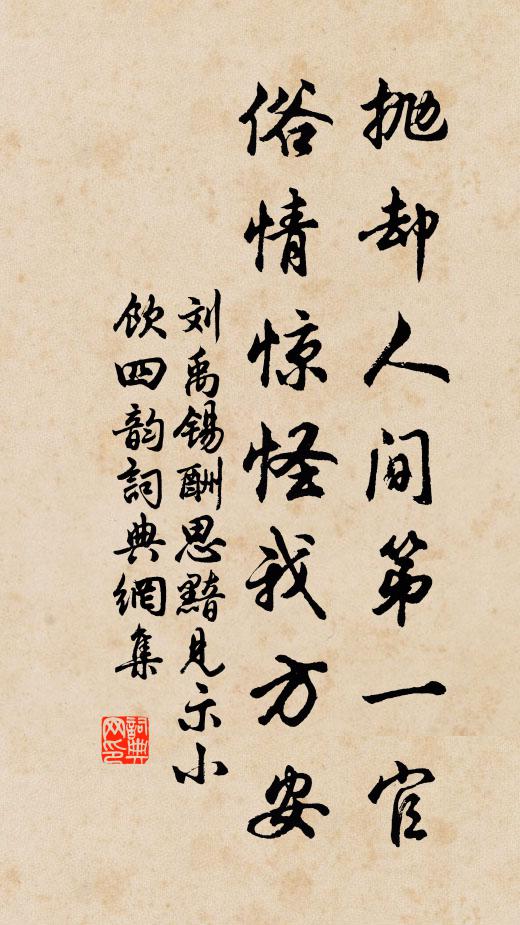 抛却人间第一官
俗情惊怪我方安
刘禹锡酬思黯见示小
饮四韵詞典網集
詞典网印